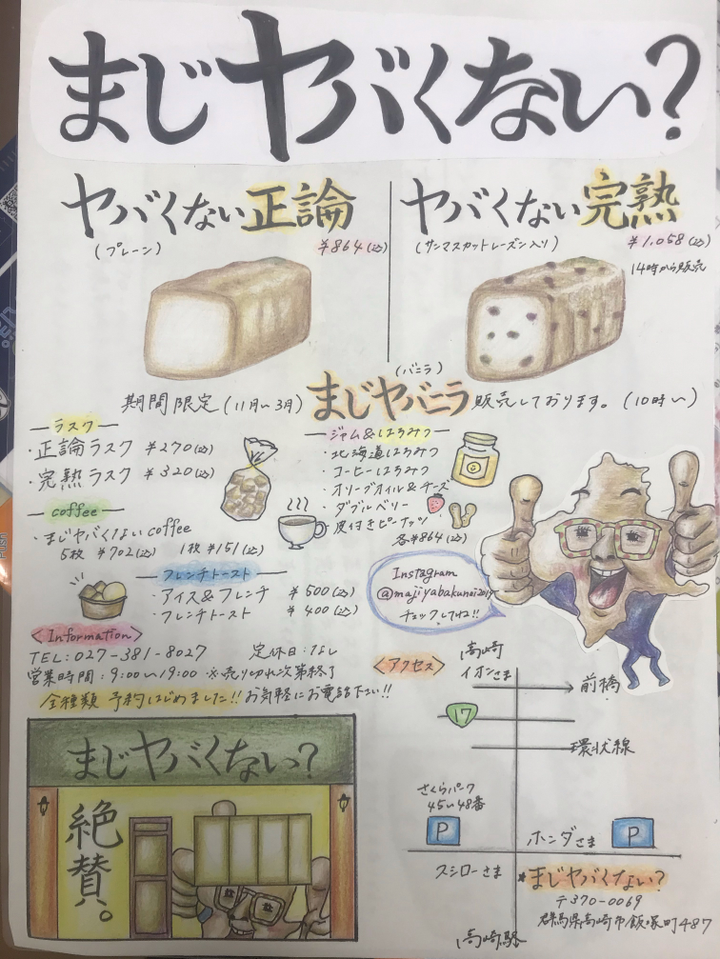 まじヤバくない?
ヤバくない正論
(プレーン)
¥864(込)
ヤバくない完熟
(サンマスカットレーズン入り)
¥1,058(込)
14時から販売
期間限定(11月〜3月)まじヤバニラ販売しております。(10時〜)
(バニラ)
ラスク
・正論ラスク ¥270(込)
・完熟ラスク ¥320(込)
coffee
・まじヤバくない coffee
5枚 ¥702(込) 1枚 ¥151(込)
ジャム&はちみつ
・北海道はちみつ
・コーヒーはちみつ
・オリーブオイル&チーズ
・ダブルベリー
・皮付きピーナッツ
各¥864(込)
フレンチトースト
・アイス&フレンチ ¥500(込)
・フレンチトースト ¥400(込)
Instagram
@majiyabakunai2019
チェックしてね!!
<Information>
TEL:027-381-8027 定休日:なし
営業時間:9:00〜19:00 ※売り切れ次第終了
全種類 予約はじめました!!お気軽にお電話下さい!!
まじヤバくない?
絶賛。
<アクセス>
高崎
イオンさま
前橋
17
環状線
さくらパーク
45〜48番
P
ホンダさま
P
スシローさま
★まじヤバくない?
〒370-0069
群馬県高崎市飯塚町487
高崎駅